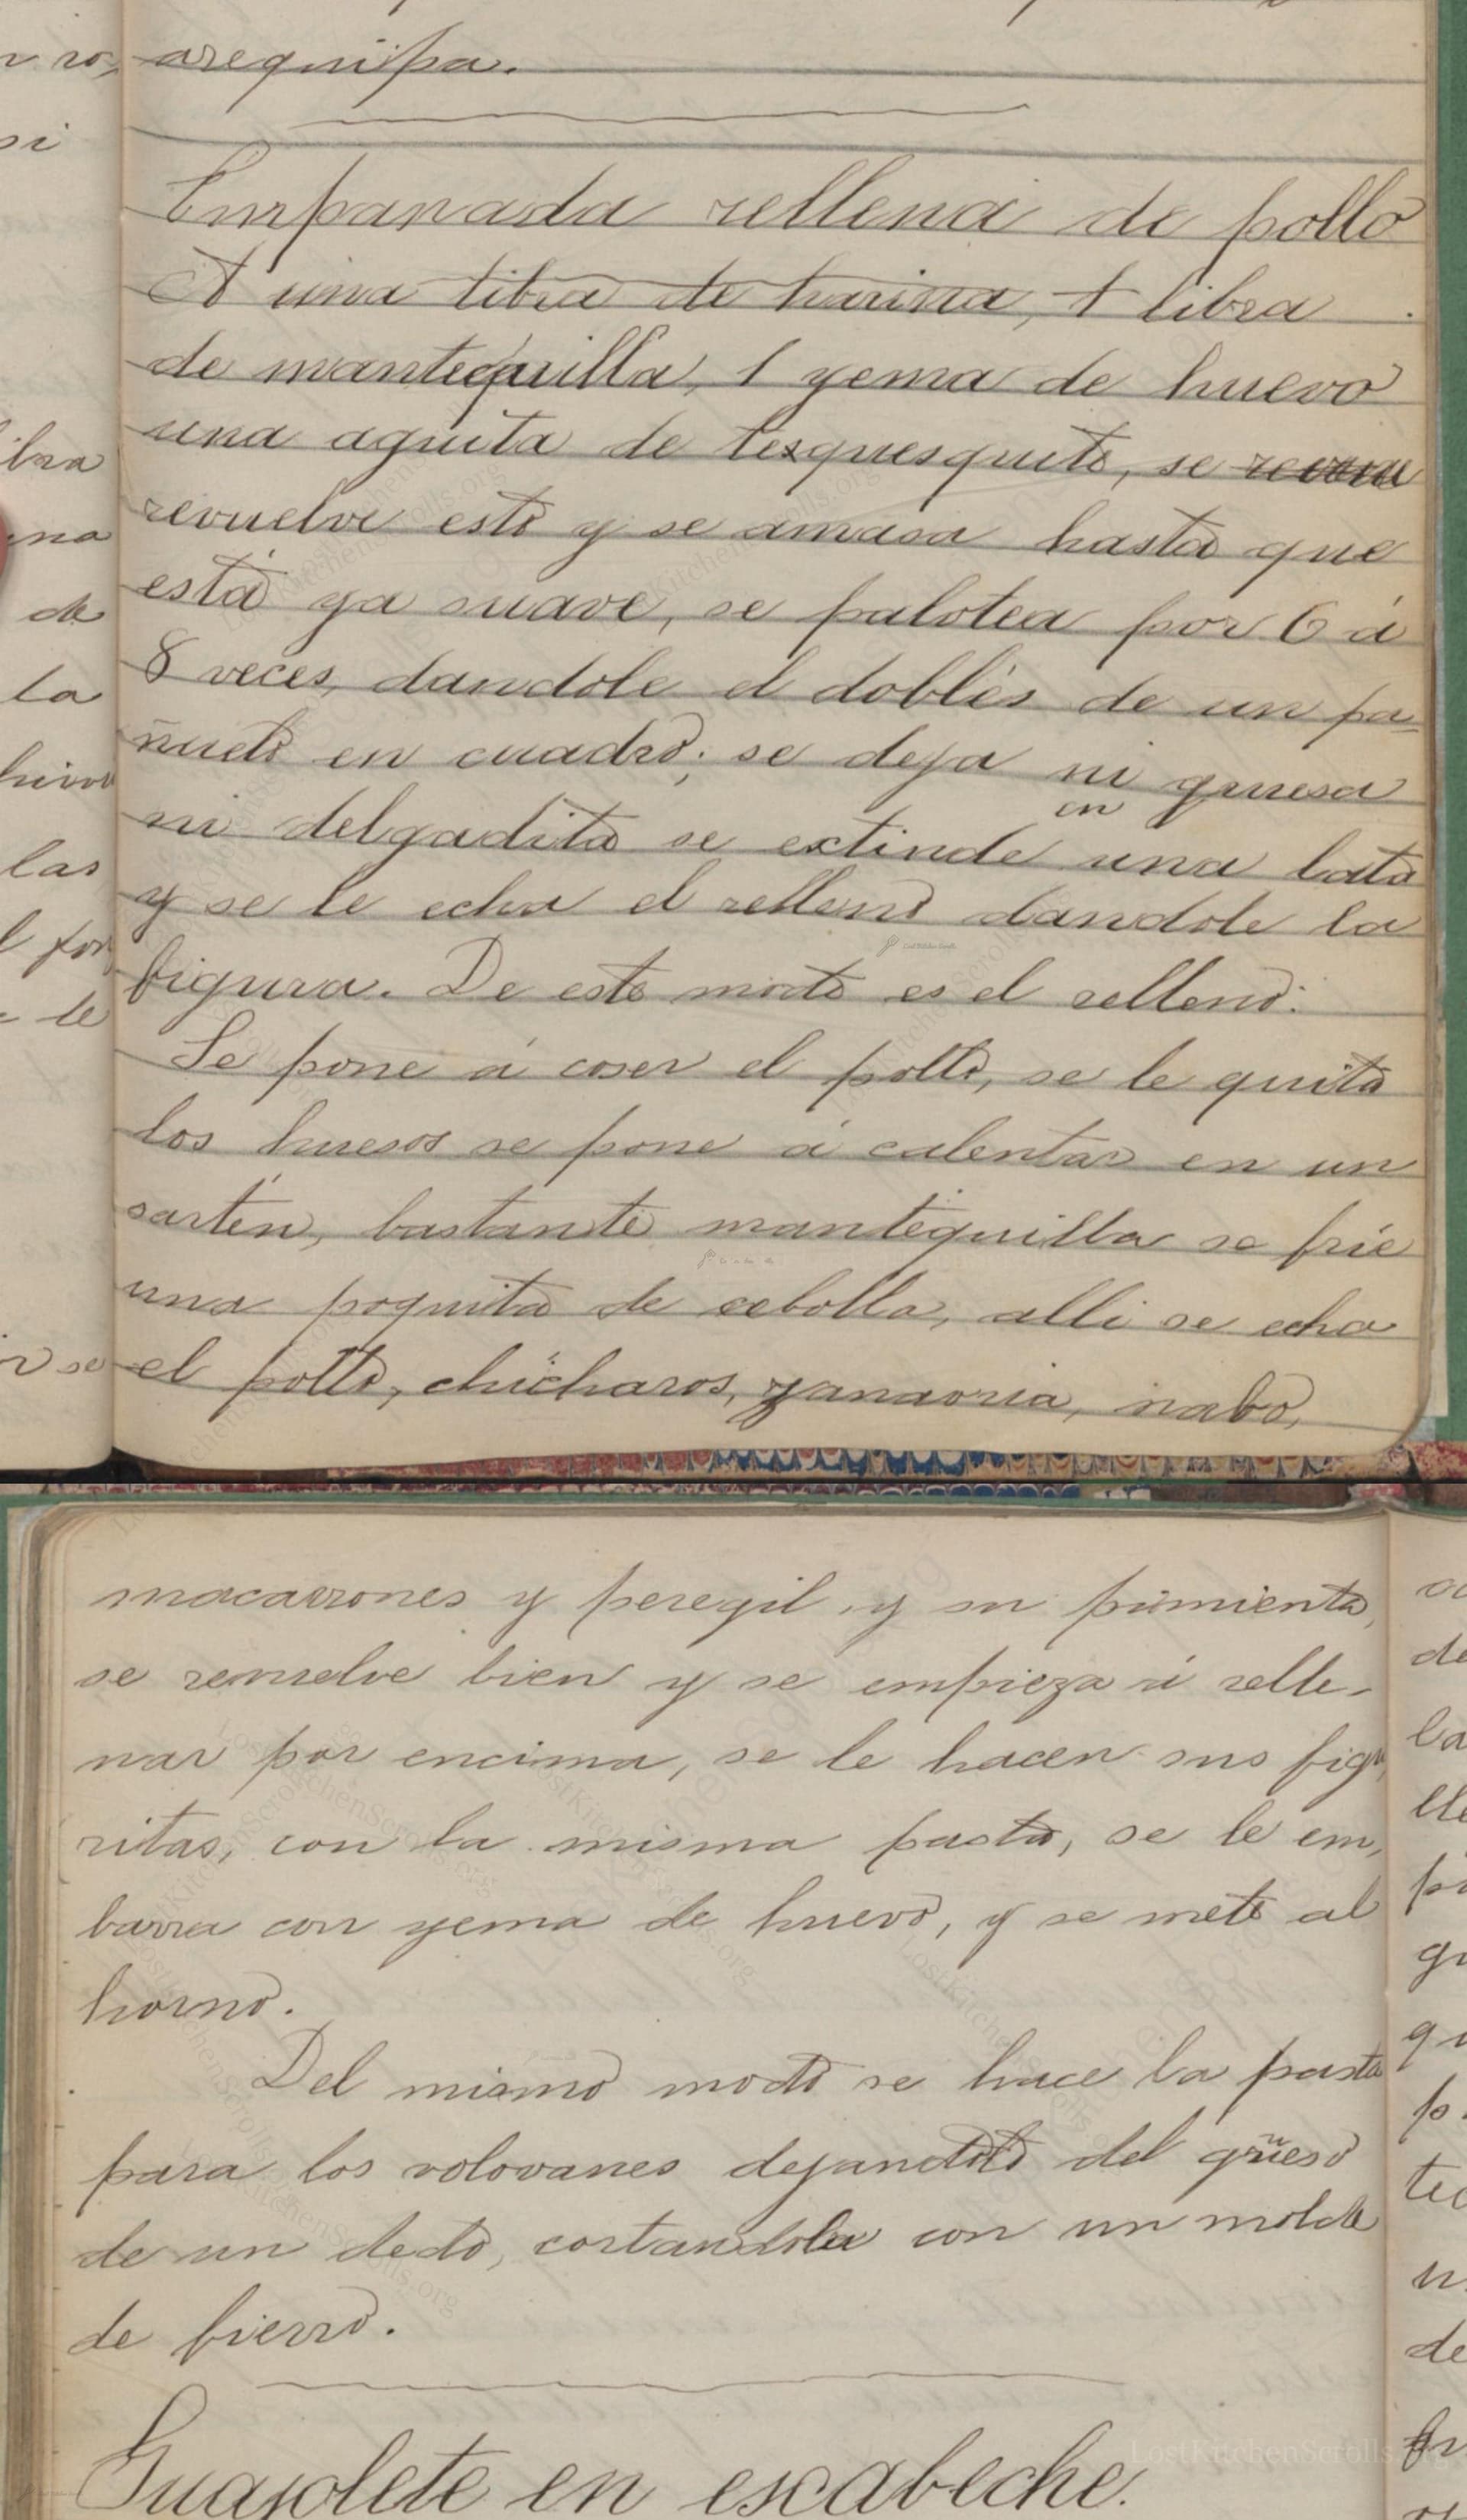 arequipa.
Empanada rellena de pollo
A una libra de harina, 1 libra
de mantequilla, 1 yema de huevo
una aguita de tesquesquite, se
revuelve esto y se amasa hasta que
está ya suave, se palotea por 6 á
8 veces, dandole el doblés de un pa-
ñuelo en cuadro; se deja ni gruesa
ni delgadita se extinde en una lata
y se le echa el relleno dandole la
figura. De este modo es el relleno:
Se pone á coser el pollo, se le quita
los huesos se pone á calentar en un
sartén, bastante mantequilla se frie
una poquita de cebolla, alli se echa
el pollo, chicharos, zanaoria, nabo,
macarrones y peregil, y su pimienta,
se revuelve bien y se empieza á relle-
nar por encima, se le hacen sus figu
ritas, con la misma pasta, se le em,
barra con yema de huevo, y se mete al
horno.
Del mismo modo se hace la pasta
para los volovanes dejandolo del grüeso
de un dedo, cortandola con un molde
de fierro.
Guajolete en escabeche.
LostKitchenScrolls